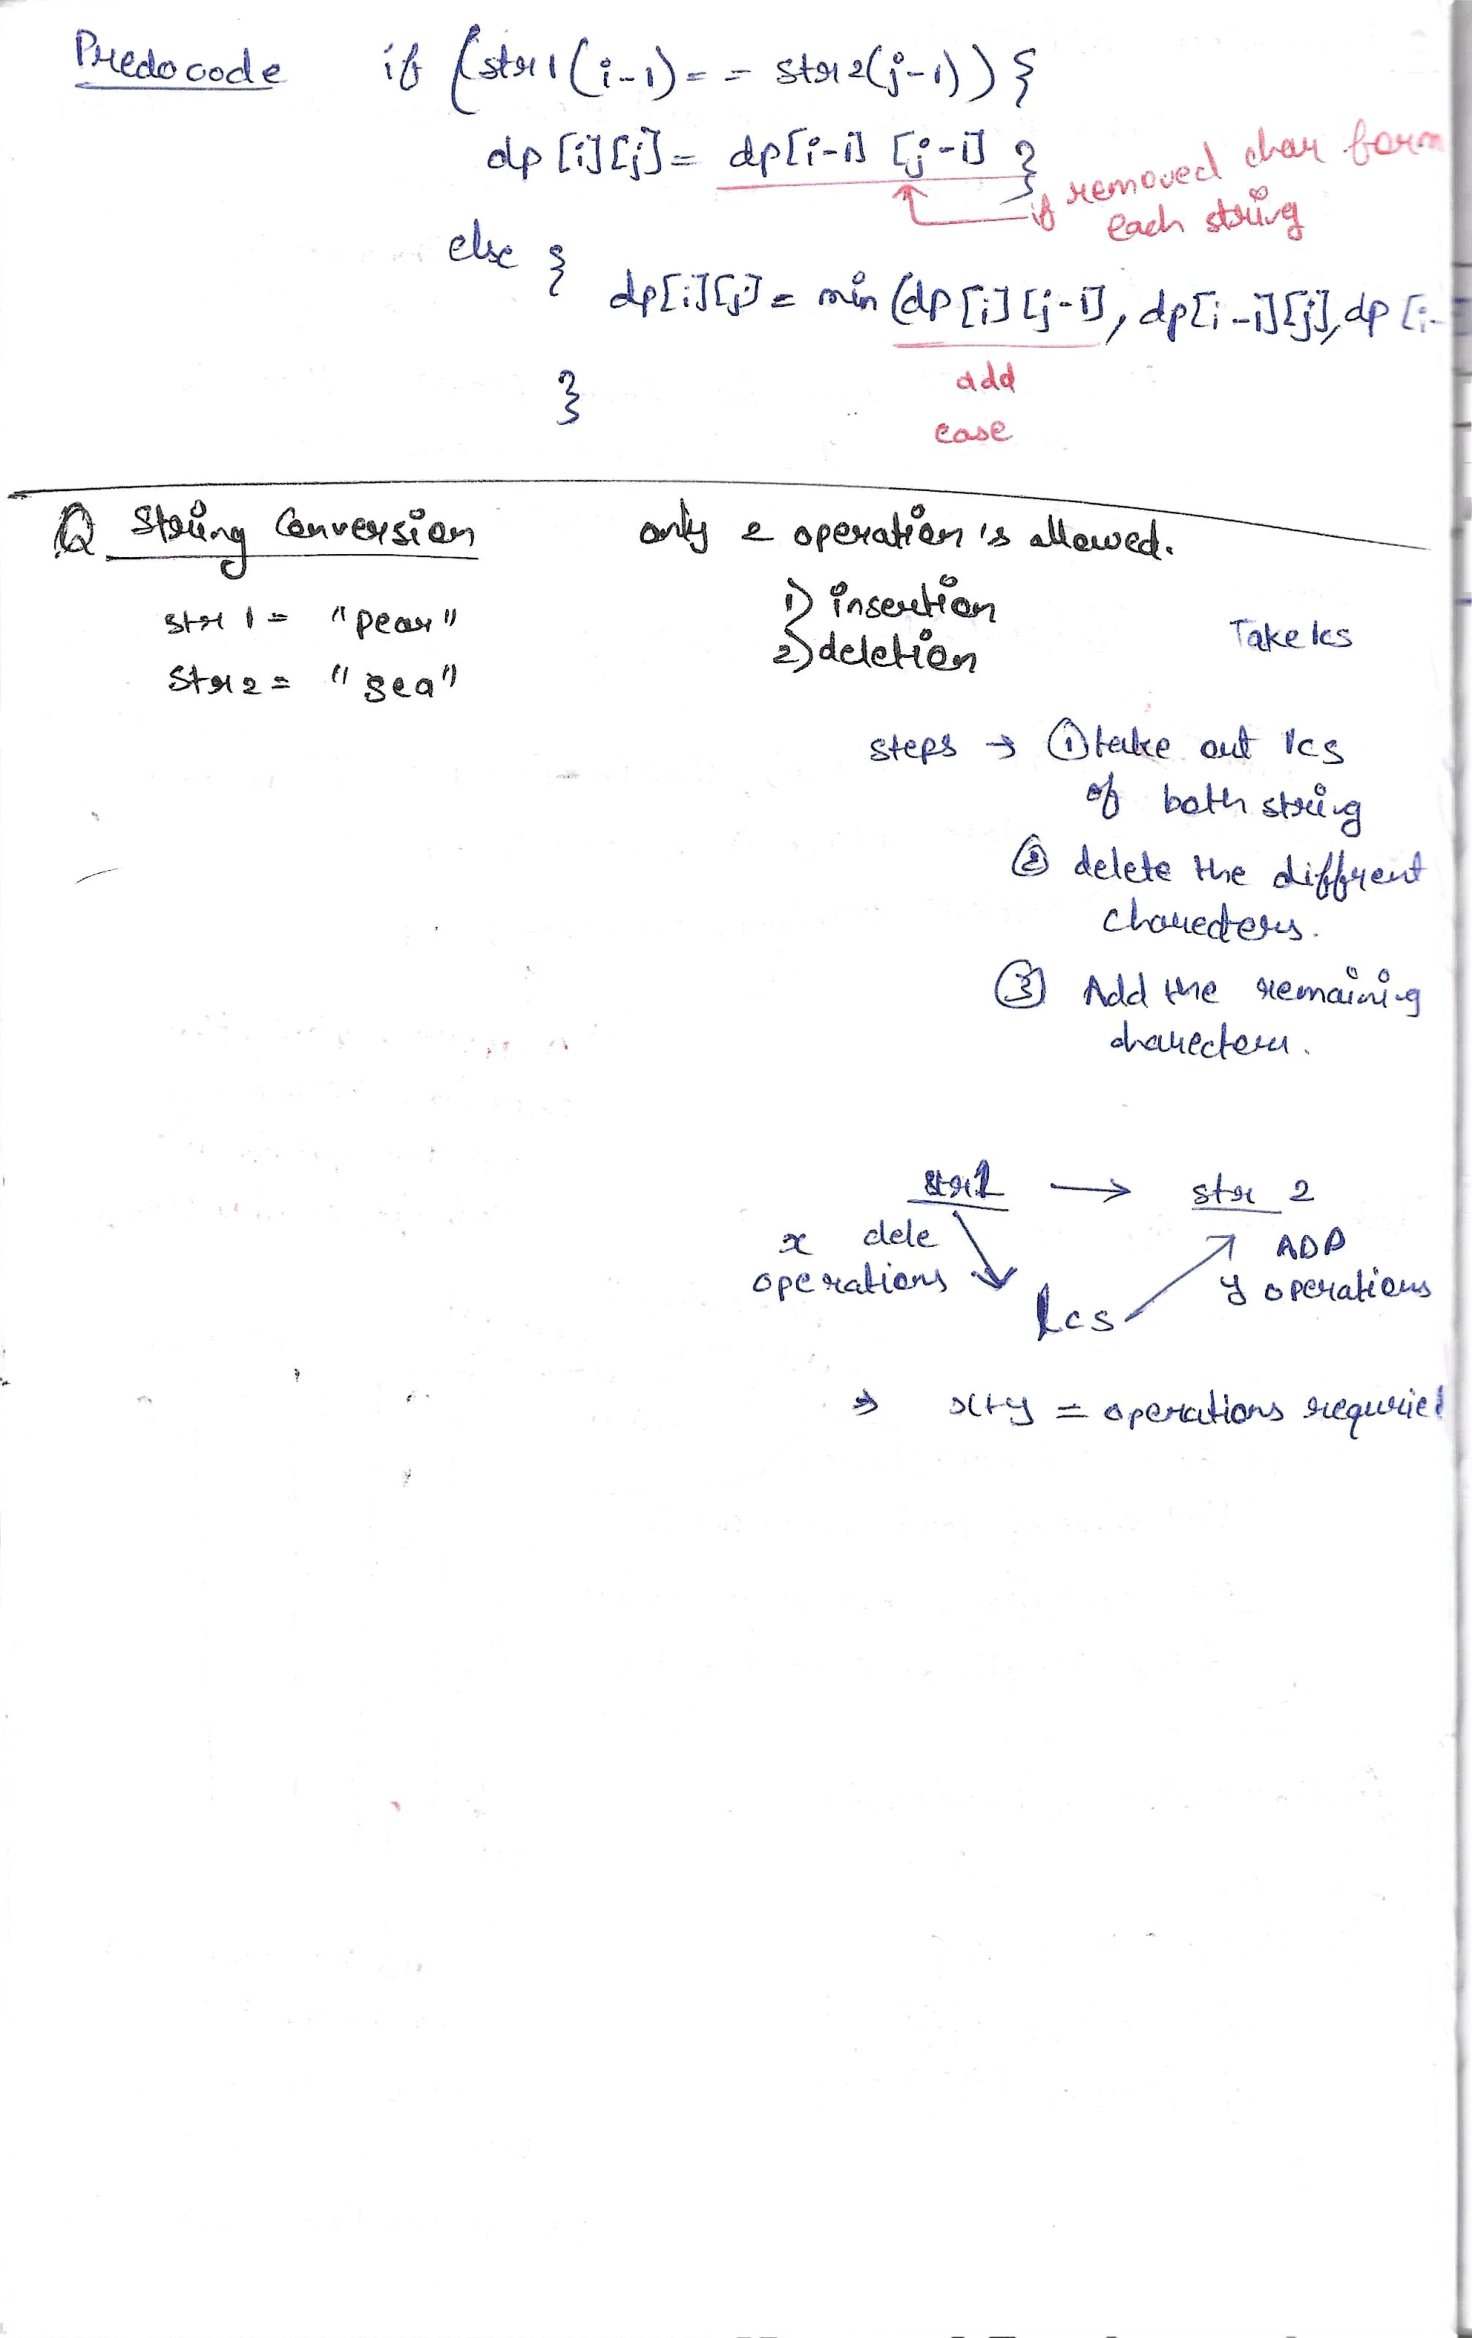 Psedocode if (str1(i-1)== str2(j-1)) {
dp[i][j]= dp[i-1][j-1] }
if removed char form
each string
else {
dp[i][j]= min(dp[i][j-1], dp[i-1][j], dp[i-
add
case
}
Q String Conversion only 2 operation is allowed.
str1 = "pear" 1) insertion
str2 = "sea" 2) deletion
Take lcs
steps → ① take out lcs
of both string
② delete the diffrent
charecters.
③ Add the remaining
charecters.
str1 → str 2
x dele ADD
operations y operations
lcs
⇒ x+y = operations requried